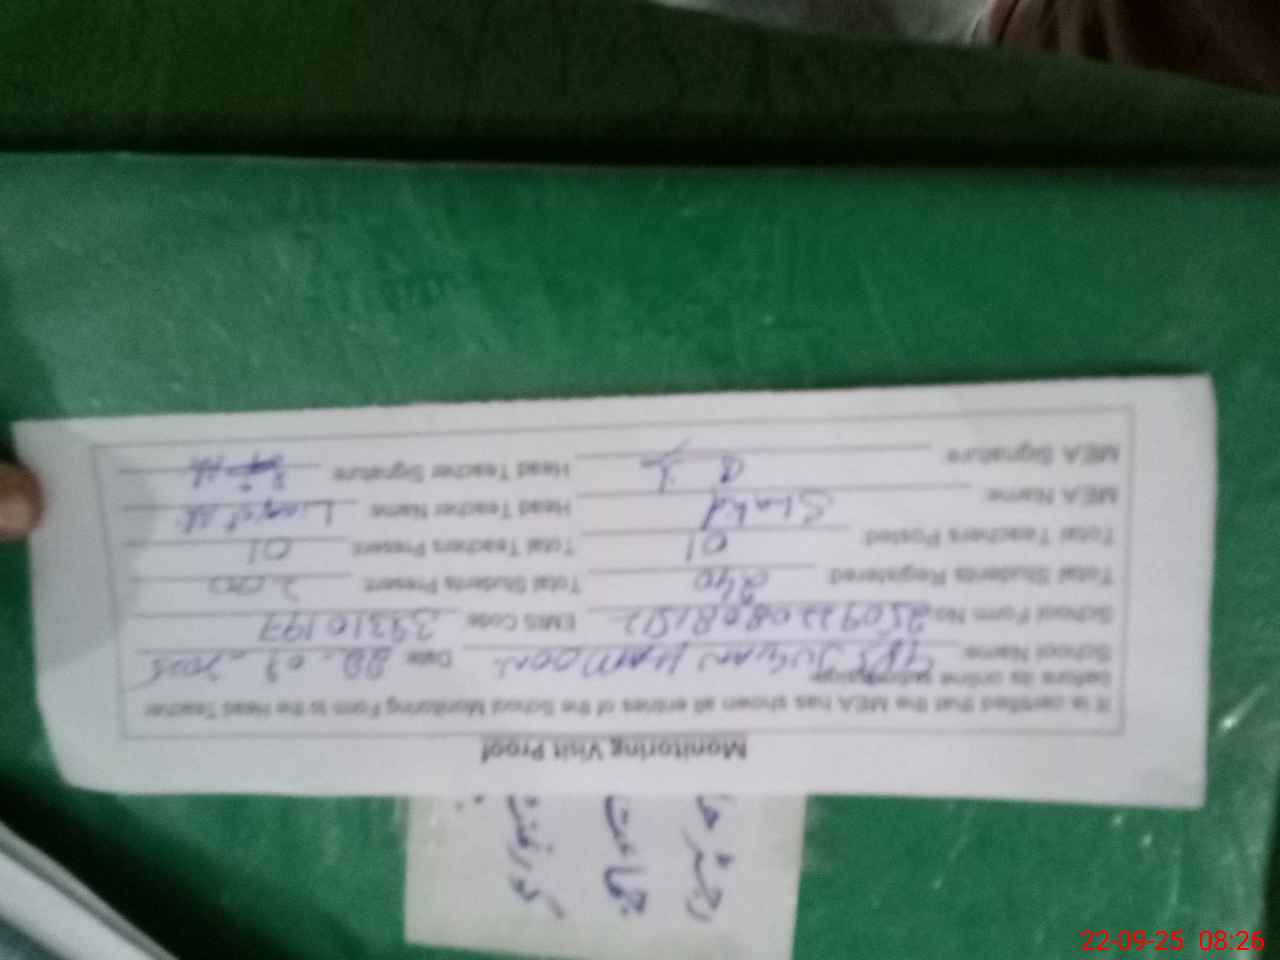 Monitoring Visit Proof
It is certified that the MEA has shown all entries of the School Monitoring Form to the Head Teacher
before its online submission
School Name: GPS JUGAN HAMOON Date: 22-09-2025
School Form No: EMIS Code: 39310197
Total Students Registered: 240 Total Students Present: 200
Total Teachers Posted: 01 Total Teachers Present: 01
MEA Name: Shahid Head Teacher Name:
MEA Signature: Head Teacher Signature:
رجسٹر
جماعت
گورنمنٹ
22-09-25 08:26